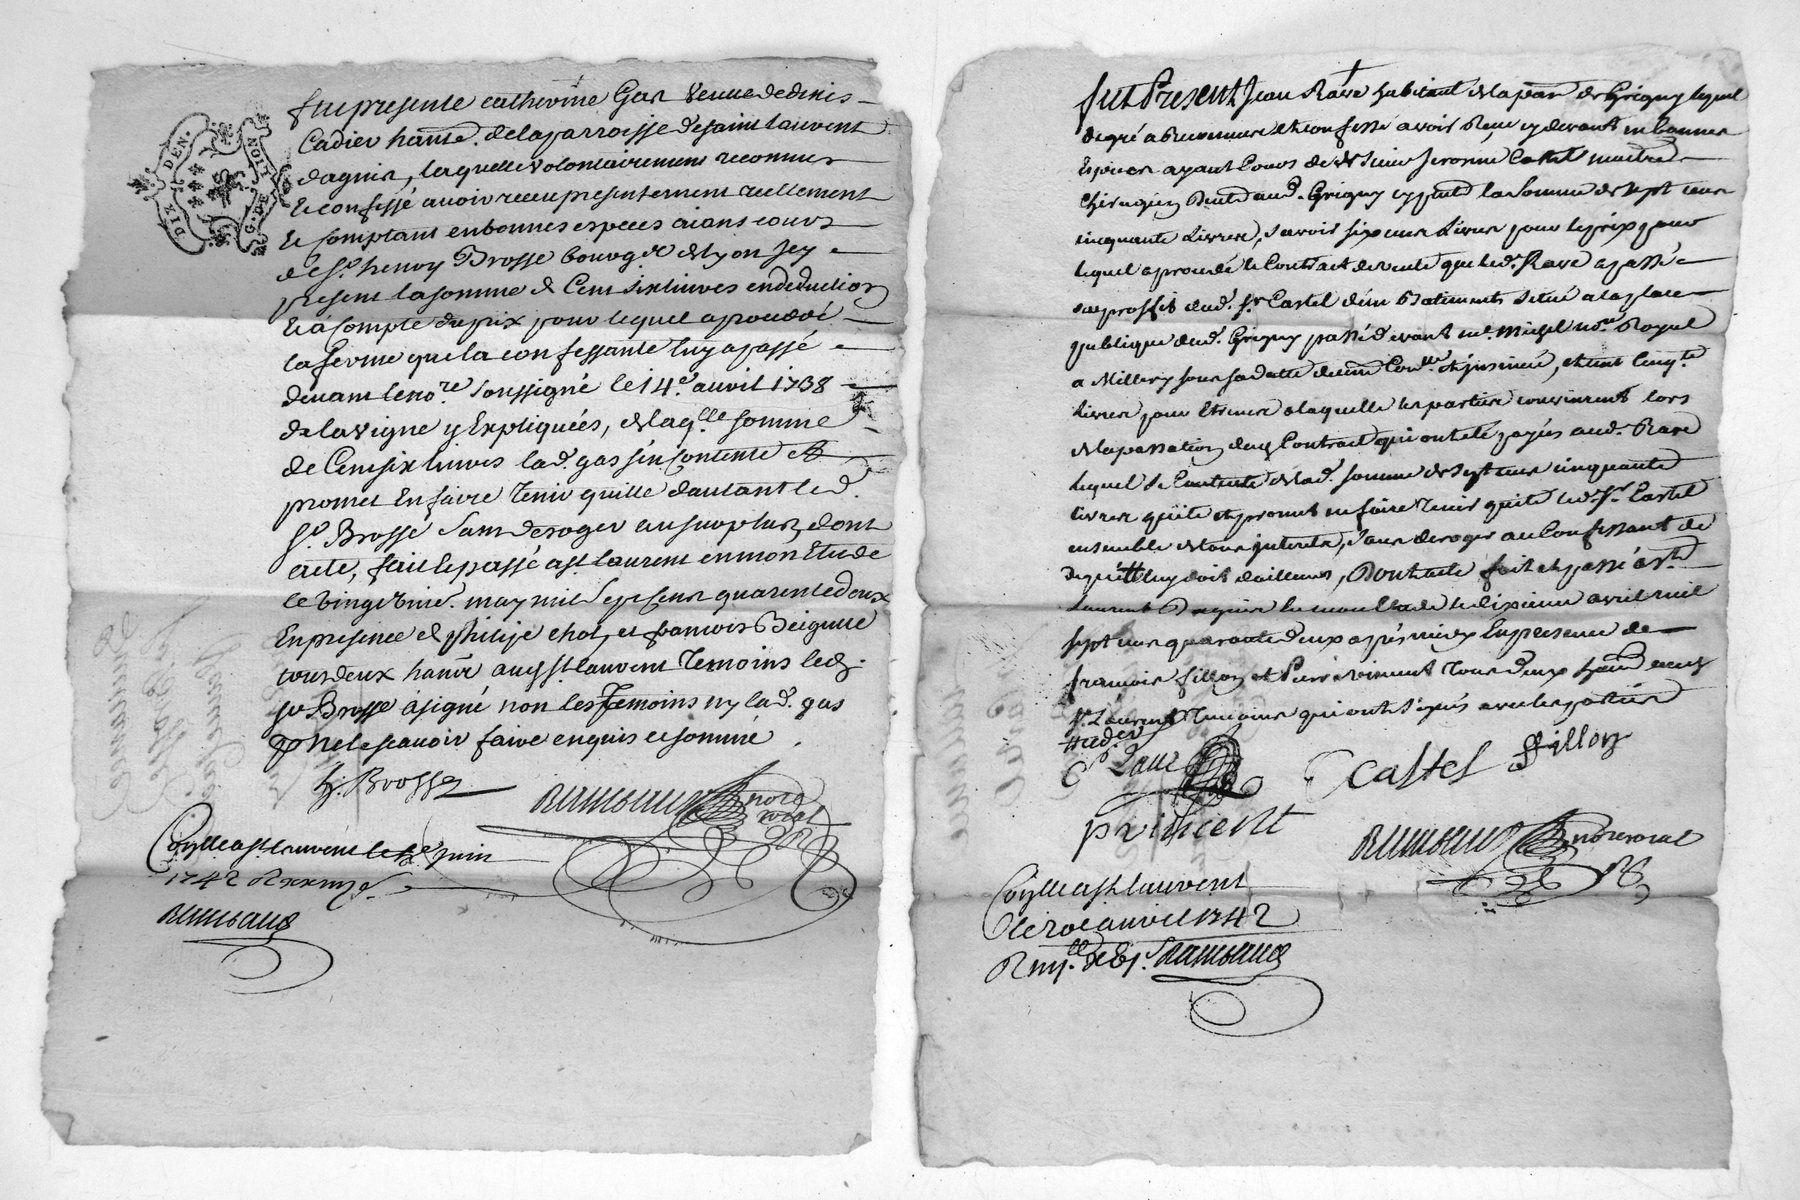 DIX DEN.
G. DE LION
fut presente catherine Gas veuve de denis
Cadier hante. de la parroisse de saint laurent
dagnis, laquelle volontairement reconnus
et confessé avoir receu presentement reellement
et comptant en bonnes especes aians cours
de sr. henry Brosse bourg. de Lyon jcy
present la somme de Cent six livres en deduction
et à compte du prix pour lequel a procedé
la ferme que la confessante luy a passé
devant le no.re soussigné le 14.e avril 1738
de la vigne y Expliquées, de laq.lle somme
de Cent six livres lad. gas s'en contente et
promet en faire tenir quitte d'autant led.
sr. Brosse sans deroger au surplus, dont
acte, fait et passé à st. laurent en mon Etude
le vingt may mil sept cent quarente deux
En presence de philipe chol, et francois Beigune
tous deux hants aud. st laurent temoins led.
sr Brosse a signé non les temoins ny lad. gas
pr ne le scavoir faire enquis et sommé.
h. Brosse
Rambaud nore royal
Con.lle a st. laurent le juin
1742 R
Rambaud
fut Present Jean Rave habitant de la par. de Grigny lequel
de gré a reconnu et confessé avoir Receu cy devant en bonnes
Especes ayant cours de Sieur Jerosme Castel maitre
chirurgien aud. Grigny cy pnt la somme de sept cent
cinquante Livres, scavoir six cent Livres pour le prix pour
lequel a procedé le Contract de vente que led. Rave a passé
au proffit dud. sr Castel d'un Batiment situé a la place
publique dud. Grigny passé devant me. Michel no.re Royal
a Millery sous sa datte et cent cinq.te
Livres pour Etrenes a laquelle les parties convinrent lors
de la passation dud. Contract qui ont été payés aud. Rave
lequel se Contente de lad. somme de sept cent cinquante
livres quite et promet en faire tenir quite led. Sr. Castel
ensemble de tous interets, sans deroger au Confessant de
ce qu'il luy doit d'ailleurs, Dont acte fait et passé a St.
Laurent Dagnis en mon Etude le dixieme avril mil
sept cent quarante deux apres midy En presence de
francois fillon et Pierre vincent tous deux hants aud.
St. Laurent Temoins qui ont signés avec les parties
Rave
Castel
ffillon
p vincent
Rambaud nore royal
Con.lle a st. laurent
le avril 1742
R Rambaud